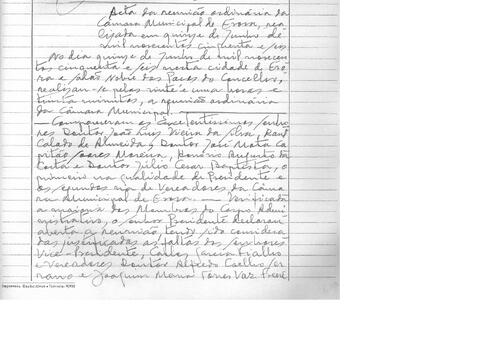 Acta da reunião ordinária da
Câmara Municipal de Évora, rea-
lizada em quinze de Junho de
mil novecentos cinquenta e seis
No dia quinze de Junho de mil novecen-
tos cinquenta e seis nesta cidade de Évo-
ra e salão Nobre dos Paços do Concelho,
realizou-se pelas vinte e uma horas e
trinta minutos, a reunião ordinária
da Câmara Municipal.
Compareceram os Excelentíssimos senho-
res Doutor João Luis Vieira da Silva,
Calado de Almeida, Doutor José Mata Ca-
pitão Soares Moreira, Augusto da
Costa e Doutor Julio Cesar Baptista, o
primeiro na qualidade de Presidente e
os segundos na de Vereadores da Câma-
ra Municipal de Évora. — Verificada
a maioria dos Membros do Corpo Admi-
nistrativo, o senhor Presidente declarou
aberta a reunião, tendo sido considera-
das justificadas as faltas dos senhores
Vice-Presidente, Carlos Garcia Fialho
e Vereadores Doutor Alfredo Coelho
e Joaquim Maria Torres Vaz Freire